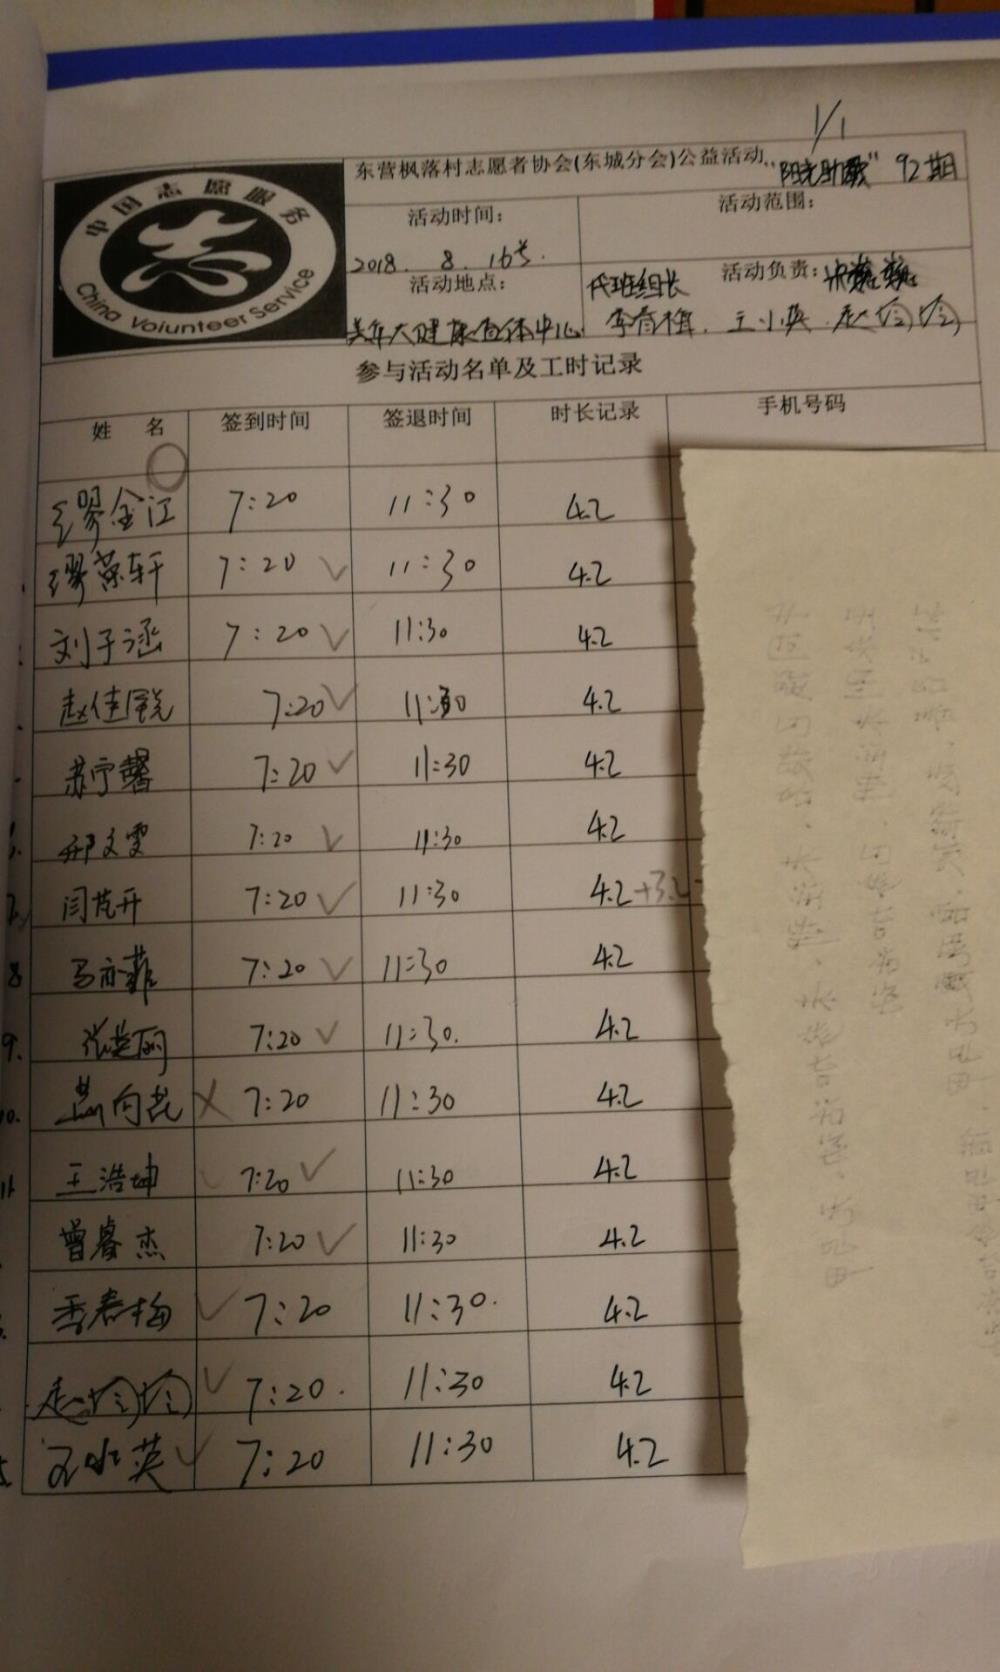 1/1
东营枫落村志愿者协会(东城分会)公益活动 "阳光助教" 92期
中国志愿服务
China Voiunteer Service
活动时间：
2018. 8. 16号.
活动范围：
活动地点：
美年大健康查体中心
代班组长 活动负责：
李春梅. 王小英. 赵珍珍
参与活动名单及工时记录
姓 名 签到时间 签退时间 时长记录 手机号码
缪金江 7:20 11:30 4.2
缪荣轩 7:20 ✓ 11:30 4.2
刘子涵 7:20 ✓ 11:30 4.2
赵佳锐 7:20 ✓ 11:30 4.2
苏宁馨 7:20 ✓ 11:30 4.2
邢文雯 7:20 ✓ 11:30 4.2
闫芃开 7:20 ✓ 11:30 4.2+3.2
8 马亦菲 7:20 ✓ 11:30 4.2
9. 张英丽 7:20 ✓ 11:30. 4.2
10. 燕向芸 × 7:20 11:30 4.2
11 王浩坤 7:20 ✓ 11:30 4.2
曾睿杰 7:20 ✓ 11:30 4.2
李春梅 ✓ 7:20 11:30. 4.2
赵珍珍 ✓ 7:20. 11:30 4.2
王小英 ✓ 7:20 11:30 4.2